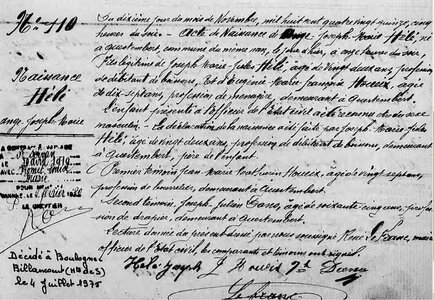 N° 110
Naissance
Hélé
ange Joseph Marie
A CONTRACTÉ MARIAGE
LE 29 avril 1919
AVEC
LE GREFFIER
Décédé à Boulogne
Billancourt (Hts de S)
le 4 juillet 1975
Du dixième jour du mois de Novembre, mil huit cent quatre vingt quinze, cinq
heures du soir. — Acte de Naissance de Ange Joseph Marie Hélé, né
à Questembert, commune du même nom, le jour d'hier, à onze heures du soir
Fils légitime de Joseph Marie Julien Hélé, âgé de vingt deux ans, profession
de débitant de boissons, Et d'Eugénie Marie Françoise Houeix, âgée
de dix sept ans, profession de ménagère, demeurant à Questembert.
L'enfant présenté à l'officier de l'état civil a été reconnu être du sexe
masculin. — La déclaration de la naissance a été faite par Joseph Marie Julien
Hélé, âgé de vingt deux ans, profession de débitant de boissons, demeurant
à Questembert, père de l'enfant.
Premier témoin, Jean Marie Houeix, âgé de vingt sept ans,
profession de demeurant à Questembert.
Second témoin, Joseph Julien âgé de soixante cinq ans, profes-
sion de drapier, demeurant à Questembert.
Lecture donnée du présent acte par nous soussigné René Le Franc, maire
officier de l'Etat civil, les comparants et témoins ont signé.
Hélé Joseph J Houeix
Lefranc